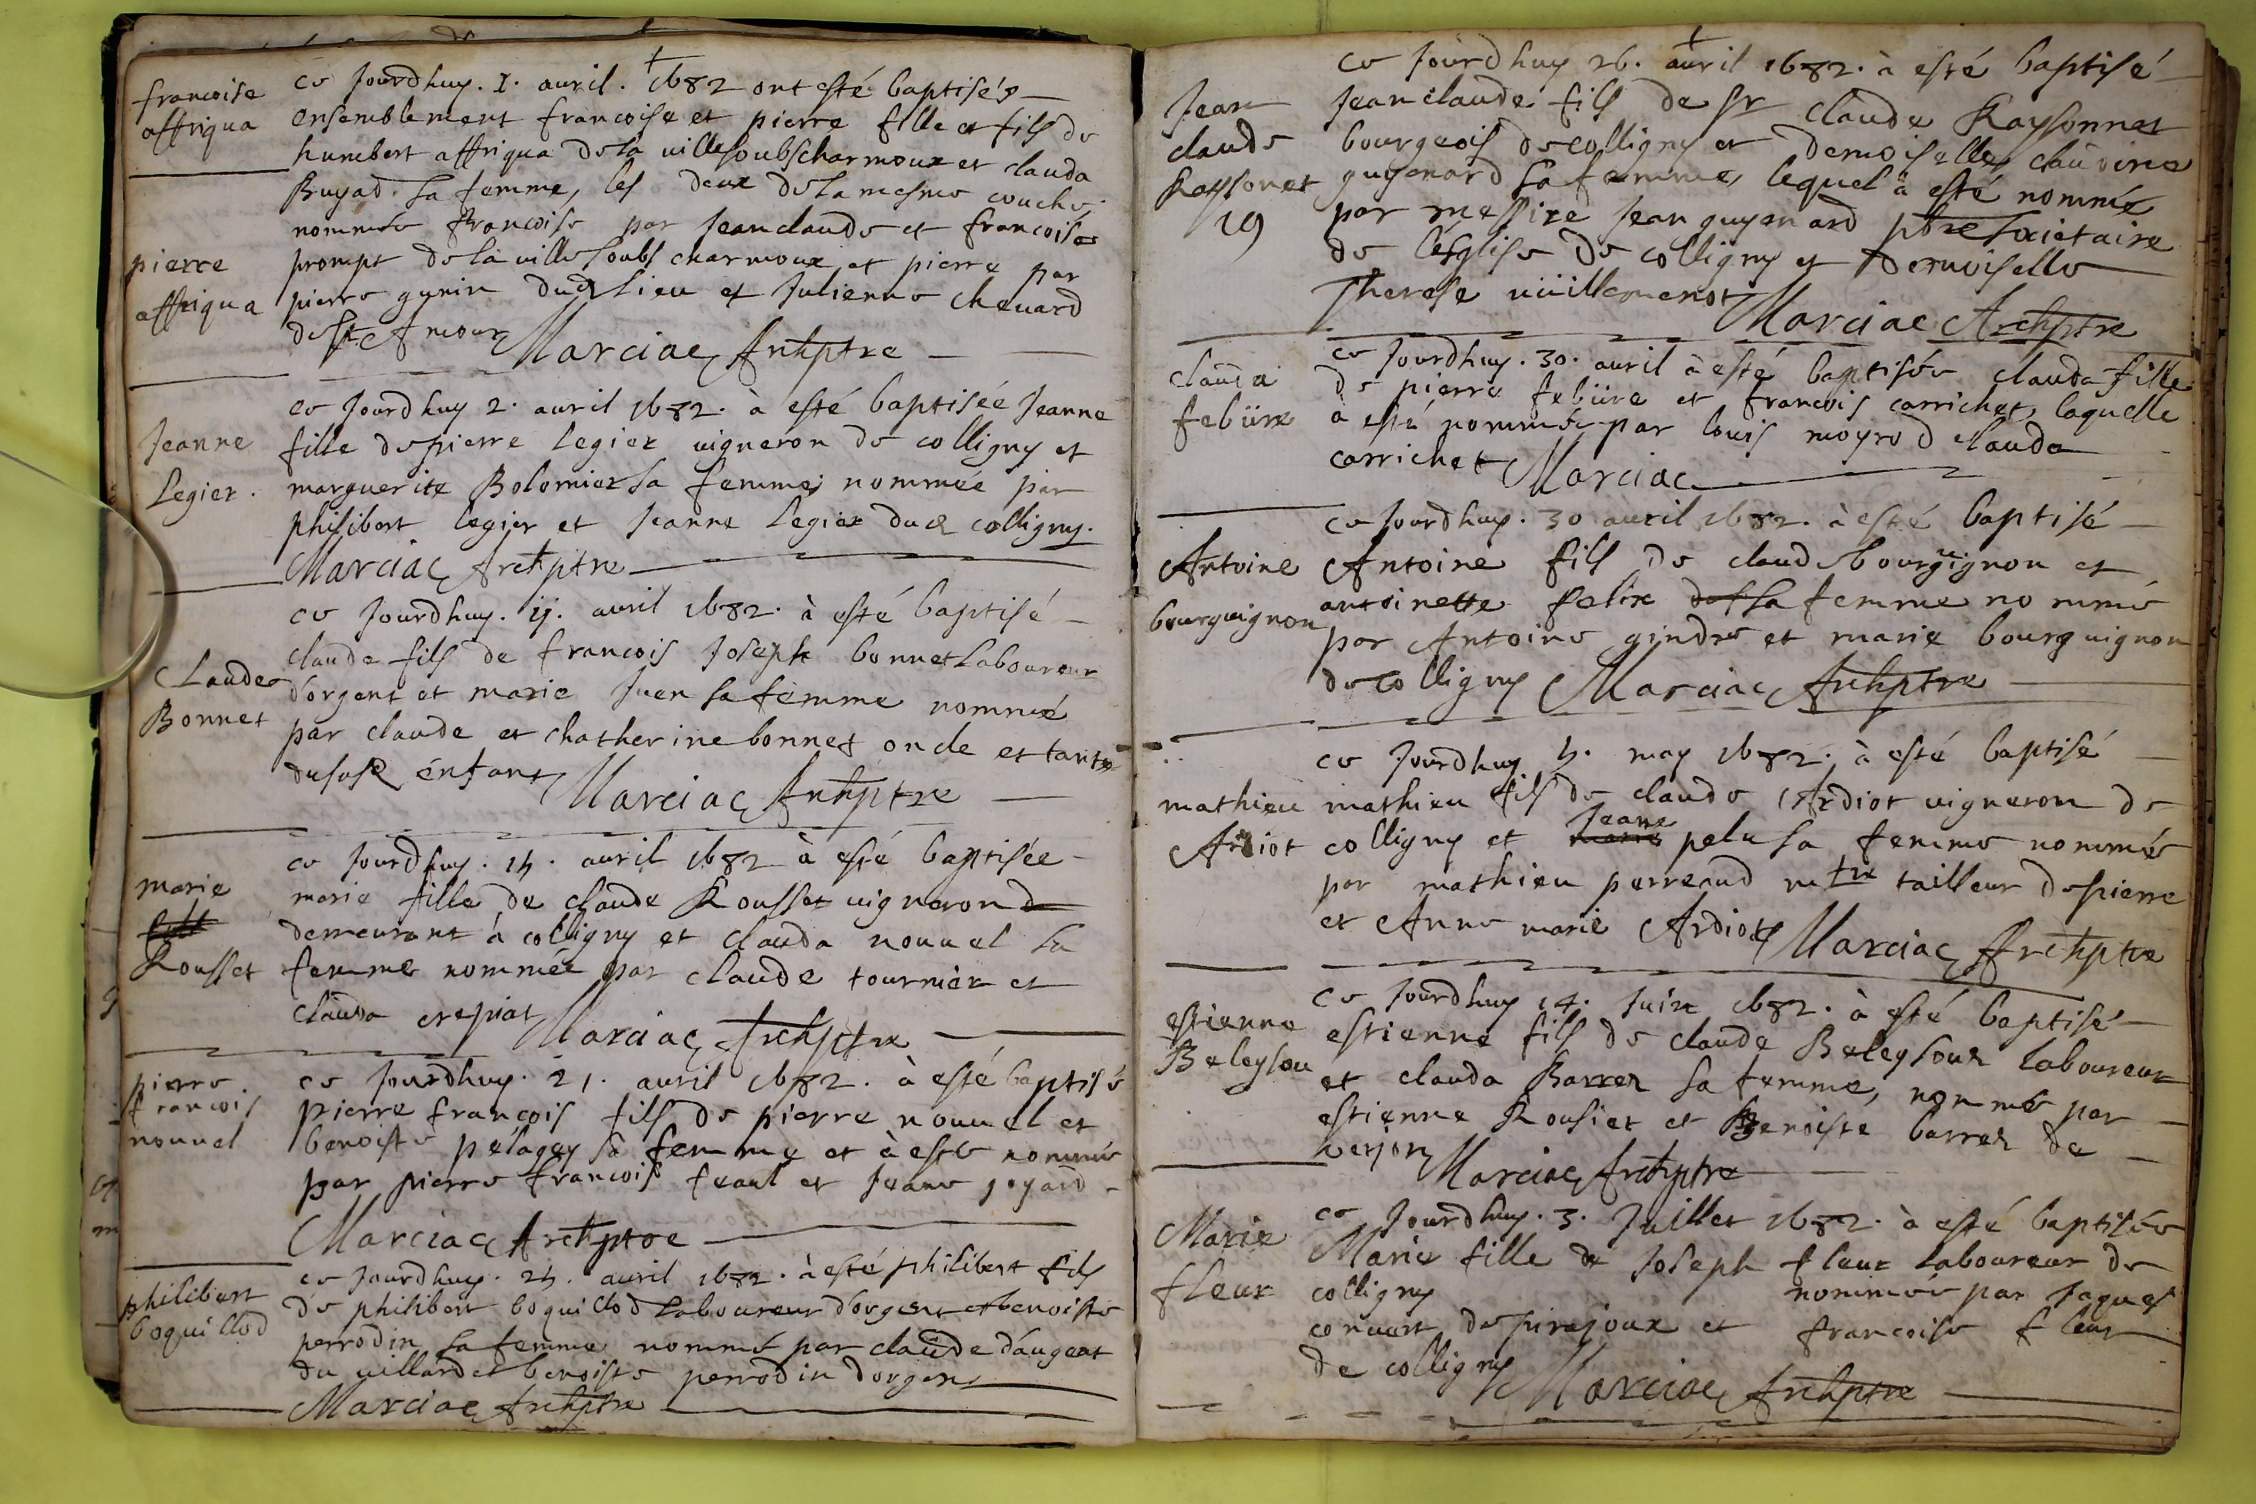 francoise
affriqua
ce Jourdhuy . 1 . auril . 1682 ont esté baptisés
ensemblement francoise et pierre fille et fils de
humbert affriqua de la ville soubs charmoux et clauda
Buyad sa femme, les deux de la mesme couche
nommée francoise par Jean claude et francoise
pierre
affriqua
prompt de la ville soubs charmoux et pierre par
pierre gynin dud lieu et Julienne cheuard
de St Amour Marciac Archptre
Jeanne
Legier .
ce Jourdhuy 2 . auril 1682 . à esté baptisée Jeanne
fille de pierre legier uigneron de colligny et
marguerite Bolomier sa femme nommée par
philibert legier et Jeanne Legier dud colligny .
Marciac Archptre
Claude
Bonnet
ce Jourdhuy . ij . auril 1682 . à esté baptisé
claude fils de francois Joseph bonnet Laboureur
dorgent et marie Juen sa femme nommé
par claude et chatherine bonnet oncle et tante
dususd enfant Marciac Archptre
marie
Rousset
ce Jourdhuy . 14 . auril 1682 à esté baptisée
marie fille de claude Rousset uigneron
demeurant à colligny et clauda nouuel sa
femme nommée par claude tournier et
clauda crepiat Marciac Archptre
pierre
francois
nouuel
ce Jourdhuy . 21 . auril 1682 . à esté baptisé
pierre francois fils de pierre nouuel et
benoiste pelagey sa femme et à esté nommé
par pierre francois feaul et Jeane joyard
Marciac Archptre
philibert
boquillod
ce Jourdhuy . 24 . auril 1682 . à esté philibert fils
de philibert boquillod Laboureur dorgent et benoiste
perrodin sa femme nommé par claude daugeat
du uillard et benoiste perrodin dorgent
Marciac Archptre
Jean
claude
Raysonet
19
ce Jourdhuy 26 . auril 1682 . à esté baptisé
Jean claude fils de sr claude Raysonnet
bourgeois de colligny et demoiselle claudine
guyenard sa femme, lequel à esté nommé
par messire Jean guyenard pbre sociétaire
de lésglise de colligny et demoiselle
Therese uuillemenot Marciac Archptre
Clauda
febüre
ce Jourdhuy . 30 . auril à esté baptisée clauda fille
de pierre febüre et francois carrichet, laquelle
a esté nommée par louis moyrod clauda
carrichet Marciac
Antoine
bourguignon
ce Jourdhuy . 30 auril 1682 . à esté baptisé
Antoine fils de claude bourguignon et
antoinette felix sa femme nommé
par Antoine gindre et marie bourguignon
de colligny Marciac Archptre
mathieu
Ardiot
ce Jourdhuy 4 . may 1682 . à esté baptisé
mathieu fils de claude Ardiot uigneron de
colligny et Jeane pelu sa femme nommé
par mathieu perreaud mtre tailleur de pierre
et Anne marie Ardiot Marciac Archptre
estienne
Beleysou
ce Jourdhuy 14 . Juin 1682 . à esté baptisé
estienne fils de claude Beleysour laboureur
et clauda Barrer sa femme, nommé par
estienne Rousiet et Benoiste barrer de
verjon Marciac Archptre
Marie
fleur
ce Jourdhuy . 3 . Juillet 1682 . à esté baptisée
Marie fille de Joseph fleur laboureur de
colligny nommée par Jaques
conuert de pirajoux et francoise fleur
de colligny Marciac Archptre